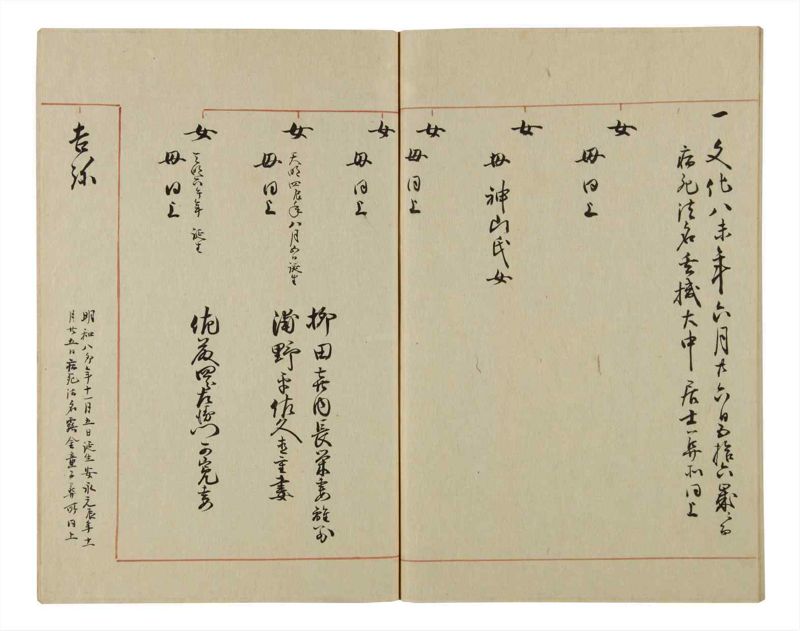 一文化八未年六月廿六日五拾六歳ニ而
病死法名玄機大中居士葬所同上
女
母同上
女
母神山氏女
女
母同上
女
母同上
柳田喜内長栄妻離別
女
天明四辰年八月五日誕生
母同上
浦野平佐久直重妻
女
天明六午年誕生
母同上
佐藤四郎左衛門
妻
吉弥
明和八卯年十一月五日誕生安永元辰年十一
月廿五日病死法名露金童子葬所同上